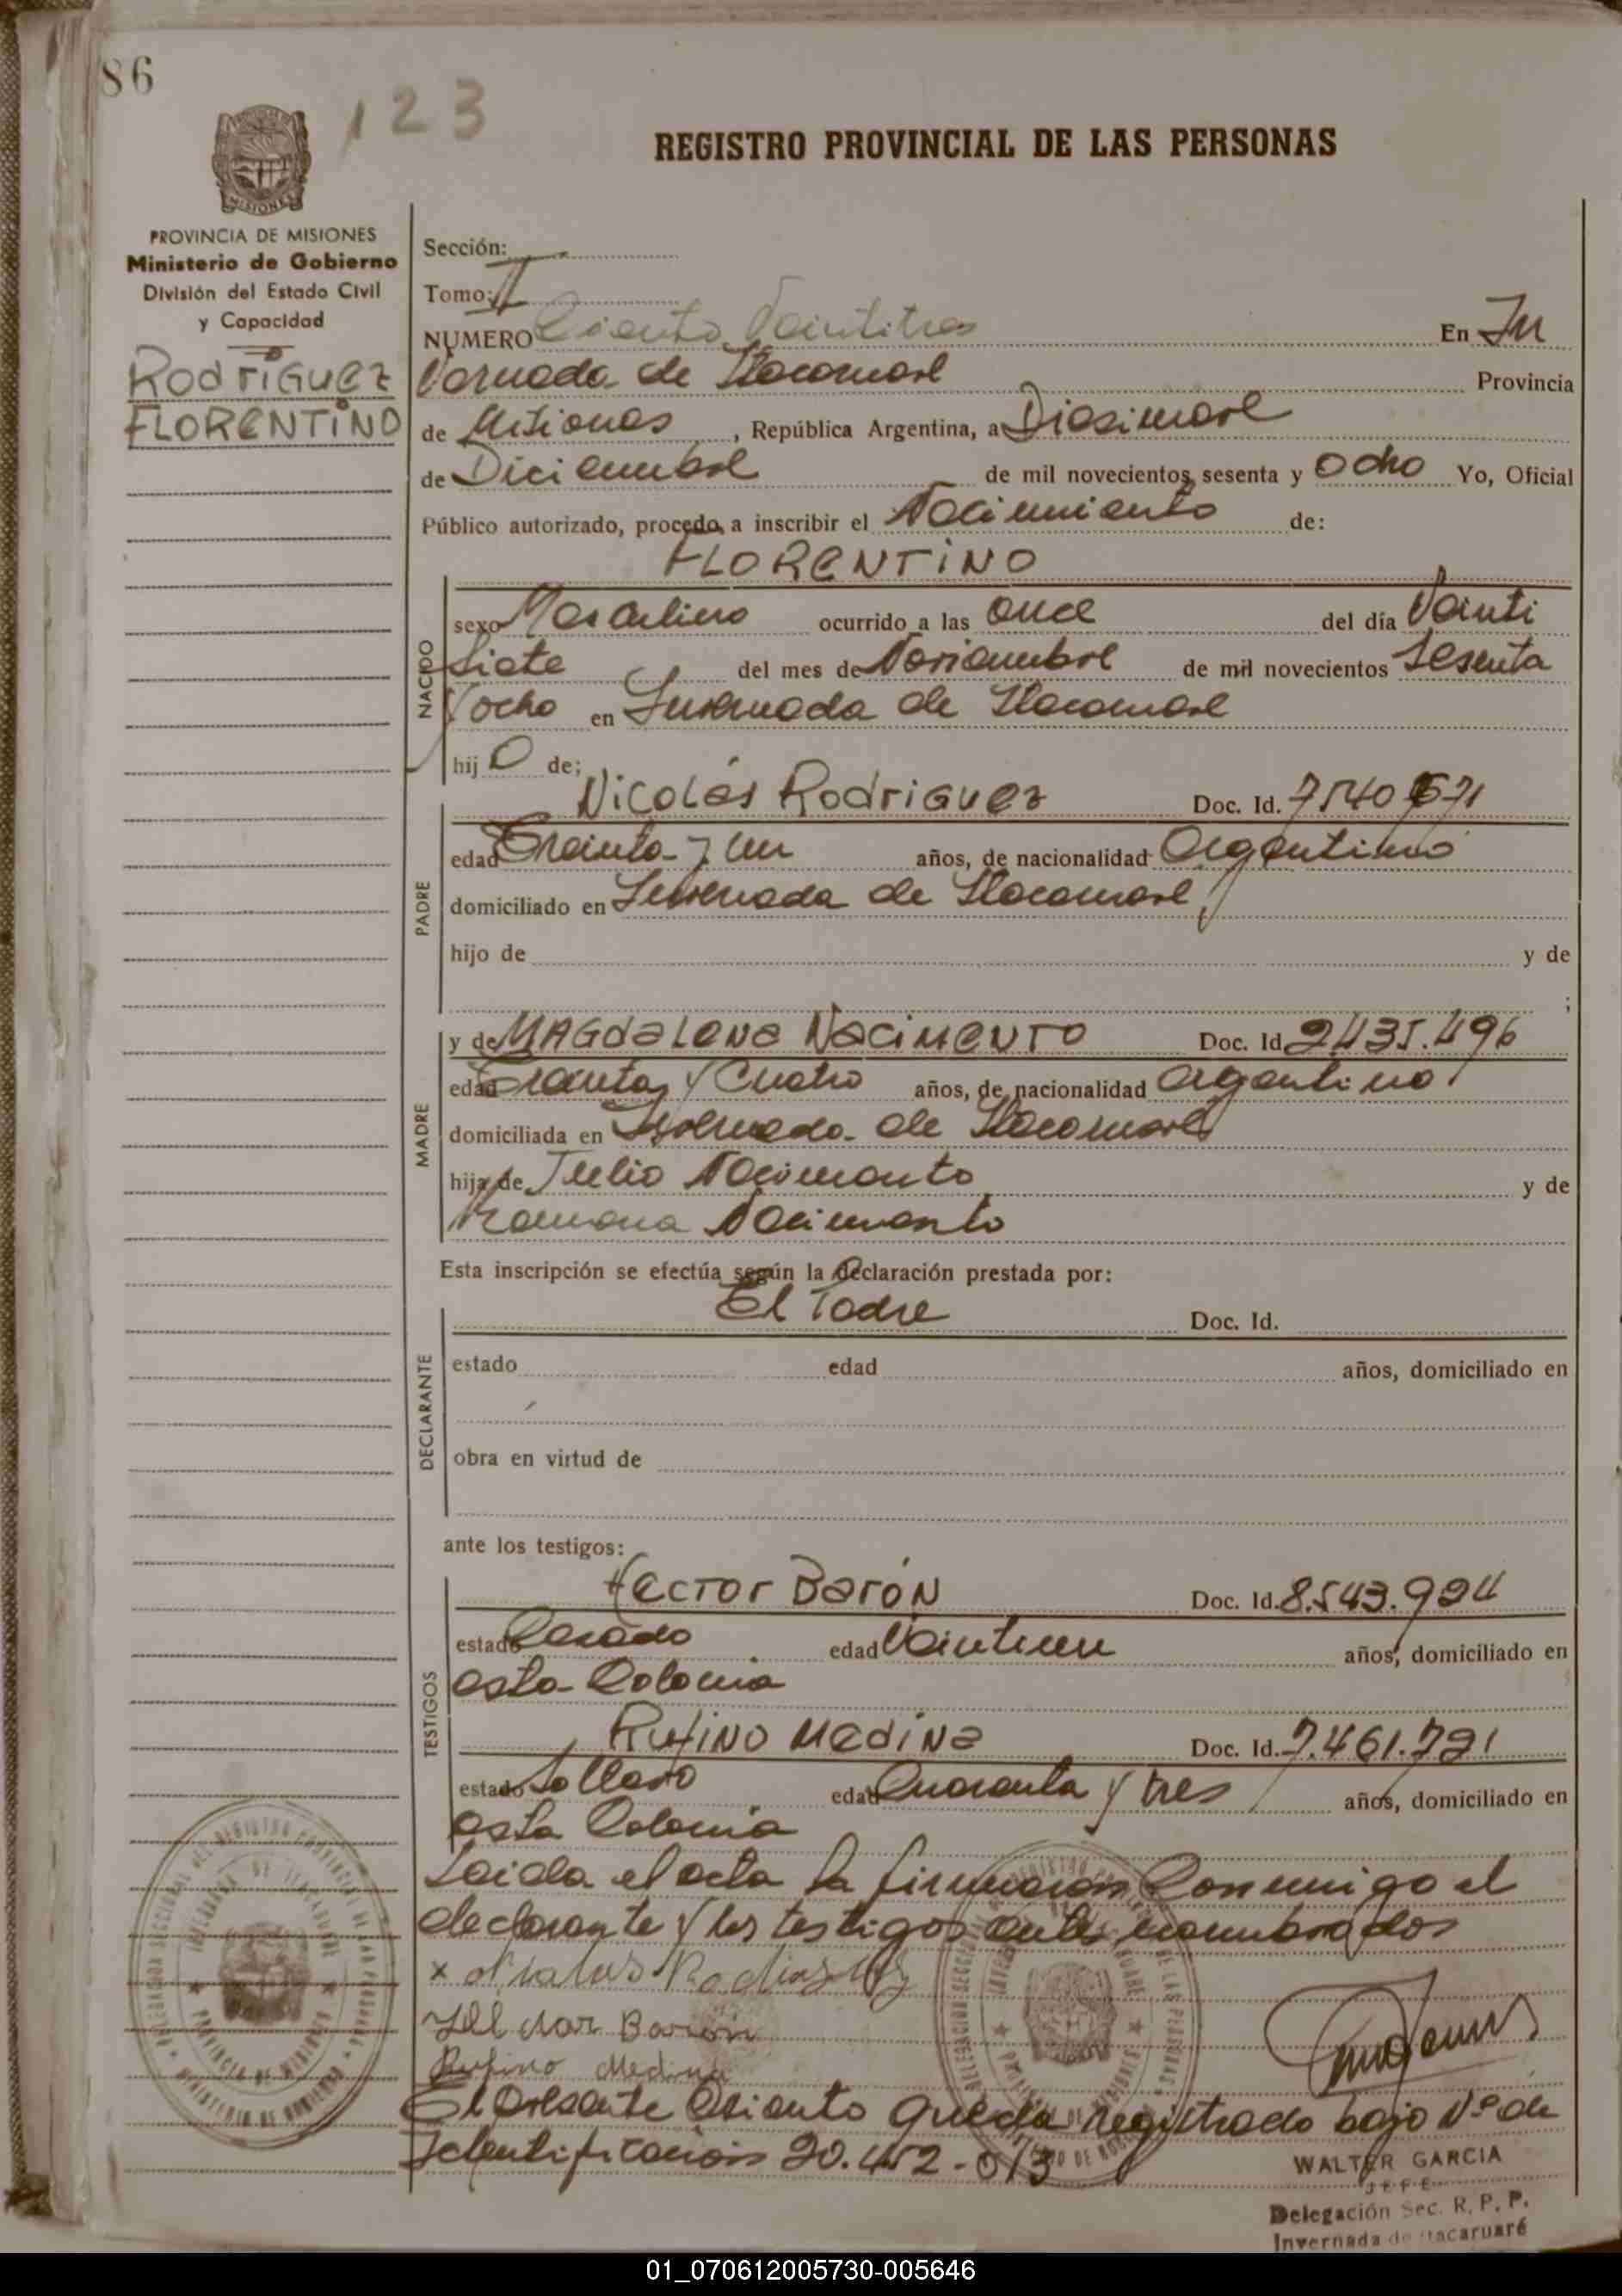 86
123
REGISTRO PROVINCIAL DE LAS PERSONAS
MISIONES
PROVINCIA DE MISIONES
Ministerio de Gobierno
División del Estado Civil
y Capacidad
RODRÍGUEZ
FLORENTINO
Sección:
Tomo: II
NUMERO Ciento Veintitres En In
vernada de Itacaruare Provincia
de Misiones, República Argentina, a Diesinueve
de Diciembre de mil novecientos sesenta y Ocho Yo, Oficial
Público autorizado, procedo a inscribir el Nacimiento de:
FLORENTINO
NACIDO
sexo Masculino ocurrido a las once del día Veinti
siete del mes de Noviembre de mil novecientos Sesenta
y ocho en Invernada de Itacaruare
hij o de;
PADRE
Nicolás Rodriguez Doc. Id. 7540671
edad Treinta y un años, de nacionalidad Argentino
domiciliado en Invernada de Itacaruare
hijo de y de
;
MADRE
y de MAGdaLENa NacIMENTO Doc. Id 2435.496
edad Treinta y Cuatro años, de nacionalidad argentino
domiciliada en Invernada de Itacaruare
hija de Julio Nacimento y de
Ramona Nacimento
Esta inscripción se efectúa según la declaración prestada por:
DECLARANTE
El Padre Doc. Id.
estado edad años, domiciliado en
obra en virtud de
ante los testigos:
TESTIGOS
Hector Barón Doc. Id. 8.543.994
estado Casado edad Veintiun años, domiciliado en
esta Colonia
Rufino Medina Doc. Id. 7.461.791
estado Soltero edad Cuarenta y tres años, domiciliado en
esta Colonia
Leida el acta la firmaron Conmigo el
declarante y los testigos antes nombrados
x Rodriguez
Barón
Rufino Medina
El presente Asiento queda registrado bajo Nº de
Identificación 20.452-013
WALTER GARCIA
JEFE
Delegación Sec. R. P. P.
Invernada de Itacaruaré
01_070612005730-005646